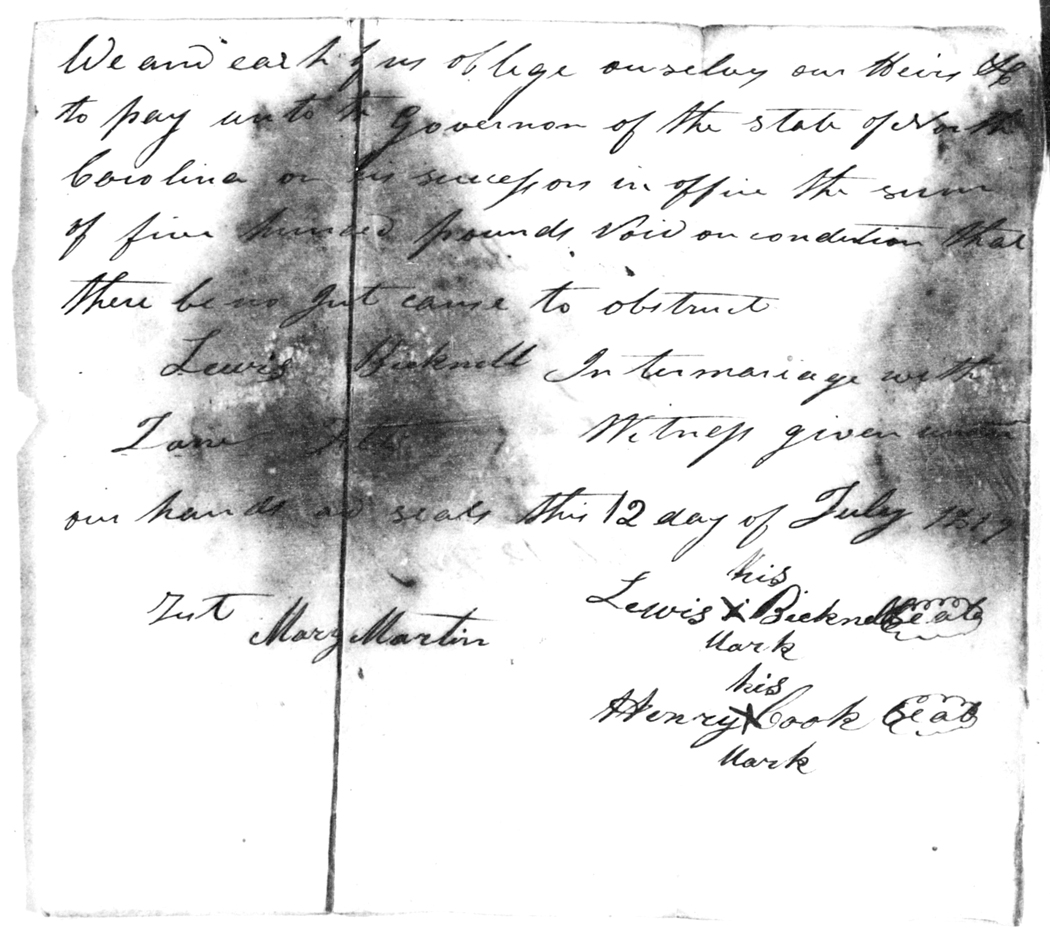 We and each of us oblege ourselves our Heirs &c
to pay unto the Governon of the state of North
Carolina or his successors in office the sum
of five hundred pounds Void on condition that
there be no Just cause to obstruct
Lewis Bicknell Intermariage with
Jane Witness given under
our hands and seals this 12 day of July
his
Lewis X Bicknell Seal
Mark
Test Mary Martin
his
Henry X Cook Seal
Mark